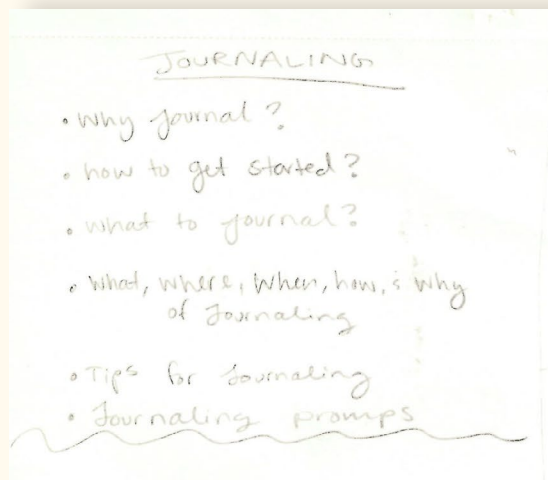 JOURNALING
• Why journal?
• how to get started?
• what to journal?
• What, where, When, how, & Why
of Journaling
• Tips for Journaling
• Journaling promps